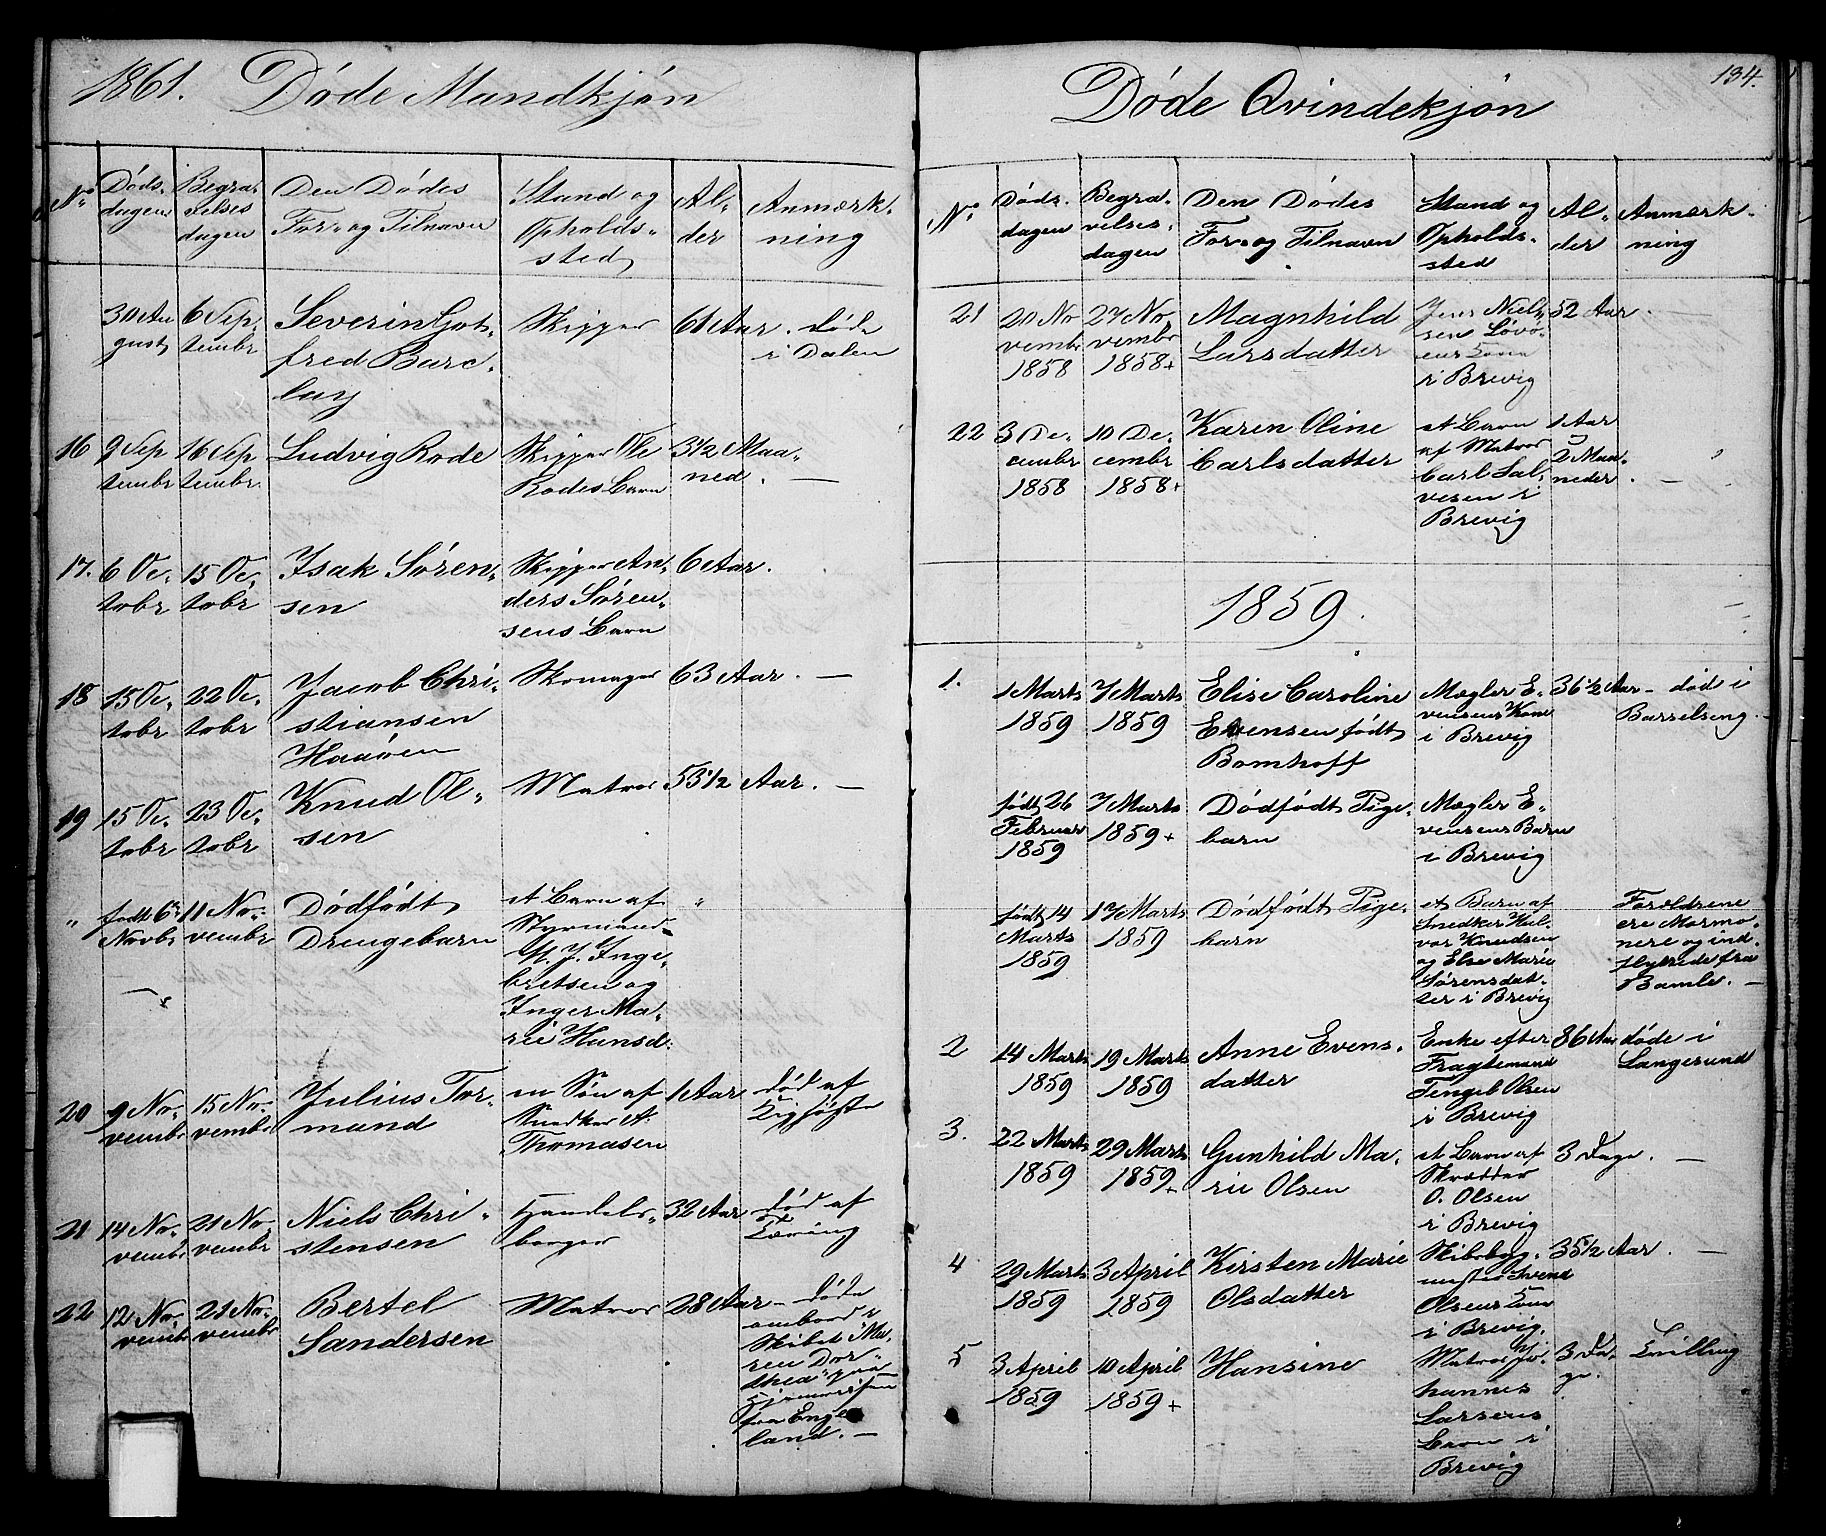 1861. Døde Mandkjøn
No
Døds-
dagen
Begra-
velses
dagen
Den Dødes
For- og Tilnavn
Stand og
Opholds-
sted
Al-
der
Anmærk-
ning
30 Au
gust
6 Sep-
tembr
Severin Got-
fred Barc-
lay
Skipper
61 Aar.
døde
i Dalen
16
9 Sep
tembr
16 Sep
tembr
Ludvig Rode
Skipper Ole
Rodes Barn
3 1/2 Maa-
ned. —
17.
6 Oc-
tobr
15 Oc-
tobr
Isak Søren-
sen
Skipper An-
ders Søren-
sens Barn
6 Aar.
18
15 Oc-
tobr
22 Oc-
tobr
Jacob Chri-
stiansen
Haaøen
Skomager
63 Aar. —
19
15 Oc-
tobr
23 Oc-
tobr
Knud Ol-
sen
Matros
53 1/2 Aar. —
"
født 6te
Novbr
11 No-
vembr
Dødfødt
Drengebarn
et Barn af
Styrmand
H. J. Inge-
bretsen og
Inger Ma-
rie Hansd.
"
20
9 No-
vembr
15 No-
vembr
Julius Tor-
mund
en Søn af
Snedker A.
Thomasen
1 Aar
død af
21
14 No-
vembr
21 No-
vembr
Niels Chri-
stensen
Handels-
borger
32 Aar
død af
Tæring
22
12 No-
vembr
21 No-
vembr
Bertel
Sandersen
Matros
28 Aar —
døde
ombord i
Skibet "Ma-
ren Dor
thea" paa
Hjemreisen
fra Eng-
land. —
Døde Qvindekjøn
134.
No
Døds-
dagen
Begra-
velses-
dagen
Den Dødes
For- og Tilnavn
Stand og
Opholds-
sted
Al-
der
Anmærk-
ning
21
20 No
vembr
1858
27 No-
vembr
1858+
Magnhild
Larsdatter
Jens Niel-
sen Løvø-
ens Kone
i Brevig
52 Aar. —
22
3 De-
cembr
1858
10 De-
cembr
1858+
Karen Oline
Carlsdatter
et Barn
af Matros
Carl Sal-
vesen i
Brevig
1 Aar
2 Maa-
neder. —
1859.
1.
1 Marts
1859
7 Marts
1859
Elise Caroline
Evensen født
Bomhoff
Mægler E-
vensens Kone
i Brevig
36 1/2 Aar —
død i
Barselseng.
født 26
Februar
1859
7 Marts
1859+
Dødfødt Pige-
barn
Mægler E-
vensens Barn
i Brevig
født 14
Marts
1859
17 Marts
1859
Dødfødt Pige-
barn
et Barn af
Snedker Hal-
vor Knudsen
og Else Marie
Sørensdat-
ter i Brevig
Forældrene
ere Mormo-
nere og ind-
flyttede fra
Bamle. —
2
14 Marts
1859
19 Marts
1859
Anne Evens-
datter
Enke efter
Fragtemand
Tengel Olsen
i Brevig
86 Aar
døde i
Langesund
3.
22 Marts
1859
29 Marts
1859+
Gunhild Ma-
rie Olsen
et Barn af
Skrædder
O. Olsen
i Brevig
3 Dage. —
4
29 Marts
1859
3 April
1859
Kirsten Marie
Olsdatter
Skibsbyg-
mester Svend
Olsens Kone
i Brevig.
35 1/2 Aar. —
5
3 April
1859
10 April
1859+
Hansine
Matros Jo-
hannes
Larsens
Barn i
Brevig
3 Da-
ge.
Tvilling